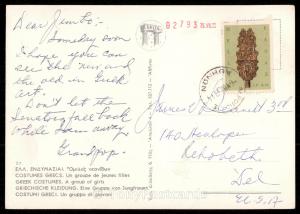 Dear Jimbo:-
Someday soon
I hope you can
see the new and
the old in Greek
art.
Don't let the
Senators fall back
while I'm away.
Grandpop.
27
ΕΛΛ. ΕΝΔΥΜΑΣΙΑΙ. "Ομιλος νεανίδων
COSTUMES GRECS. Un groupe de jeunes filles
GREEK COSTUMES. A group of girls
GRIECHISCHE KLEIDUNG. Eine Gruppe von Jungfrauen
COSTUMI GRECI. Un gruppo di giovani
02793
James
140
Rehobeth
Del
U.S.A